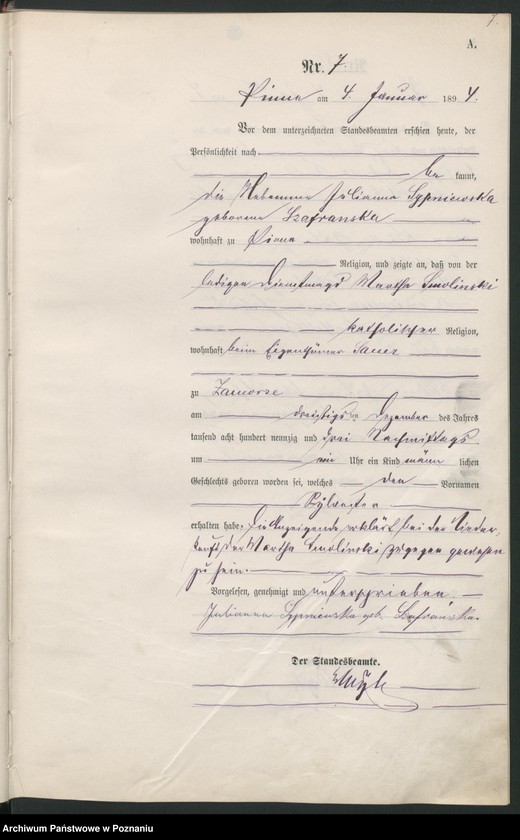 7.
A.
Nr. 7
Pinne am 4. Januar 1894.
Vor dem unterzeichneten Standesbeamten erschien heute, der
Persönlichkeit nach
be kannt,
die Hebamme Julianna Sypniewska
geborene Szafranska
wohnhaft zu Pinne
Religion, und zeigte an, daß von der
ledigen Dienstmagd Martha Smolinski
katholischer Religion,
wohnhaft beim Eigenthümer Sauer
zu Zamorze
am dreißigsten Dezember des Jahres
tausend acht hundert neunzig und drei Nachmittags
um ein Uhr ein Kind männ lichen
Geschlechts geboren worden sei, welches den Vornamen
Sylvester
erhalten habe. Die Anzeigende erklärt, bei der Nieder-
kunft der Martha Smolinski zugegen gewesen
zu sein.
Vorgelesen, genehmigt und unterschrieben
Julianna Sypniewska geb. Szafranska.
Der Standesbeamte.
Archiwum Państwowe w Poznaniu